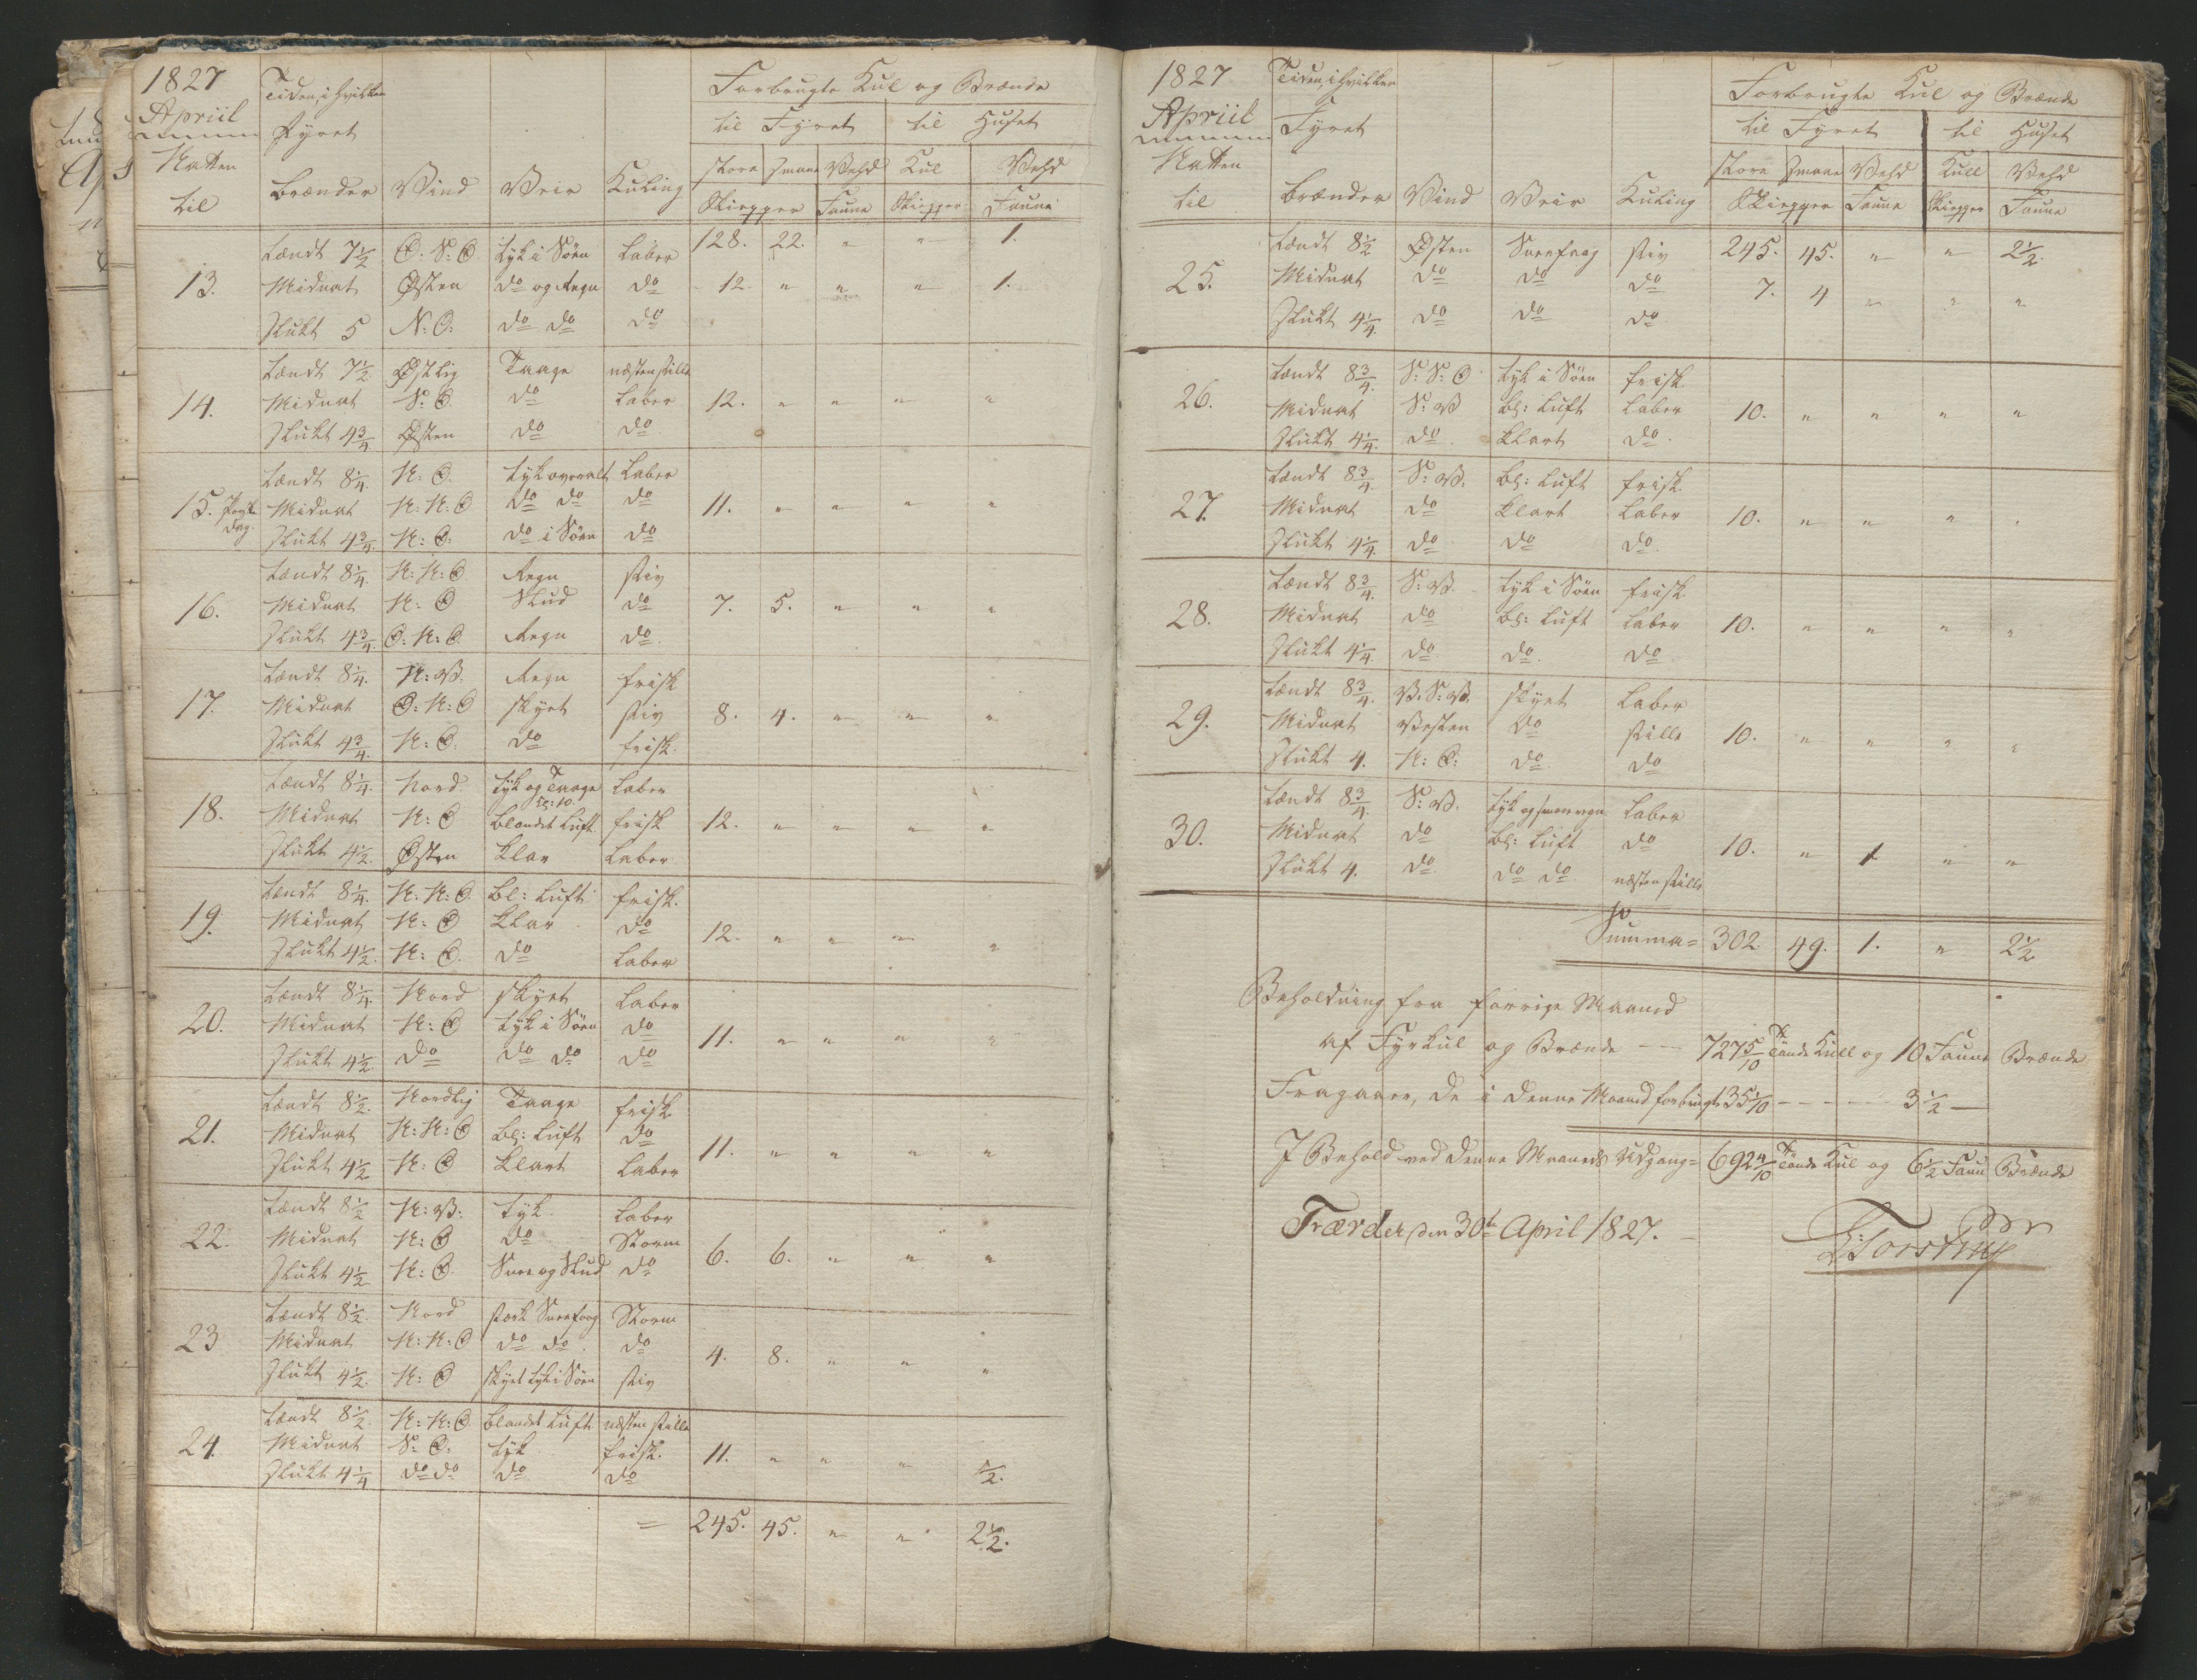 1827
Apriil
Natten
til
Tiden, i hvilken
Fyret
brænder Vind Veir Kuling
Forbrugte Kul og Brænde
til Fyret til Huset
store smaae Vehd Kul Vehd
Skiepper Faune Skiepper Faune
128. 22. " " 1.
13. tændt 7 1/2 Ø. S: Ø. tyk i Söen Laber
Midnat Østen do og Regn do 12 " " " 1.
slukt 5 N: O: do do do
14. tændt 7 1/2 Østlig Taage næsten stille
Midnat S: Ø. do Laber 12. " " " "
slukt 4 3/4 Østen do do
15. tændt 8 1/4 N: Ø. tyk overalt Laber
Midnat N: N: Ø do do do 11. " " " "
slukt 4 3/4 N: Ø: do i Söen do
16. tændt 8 1/4 N: N: Ø Regn stiv
Midnat N: Ø Slud do 7. 5. " " "
slukt 4 3/4 Ø: N: Ø Regn do
17. tændt 8 1/4 N: V. Regn frisk
Midnat Ø: N: Ø skyet stiv 8. 4. " " "
slukt 4 3/4 N: Ø. do frisk
18. tændt 8 1/4 Nord tyk og Taage Laber
kl: 10.
Midnat N: Ø blandet Luft frisk 12. " " " "
slukt 4 1/2 Østen klar Laber
19. tændt 8 1/4 N: N: Ø. bl: Luft frisk.
Midnat N: Ø klar do 12. " " " "
slukt 4 1/2 N: Ø. do Laber
20. tændt 8 1/4 Nord skyet Laber
Midnat N: Ø tyk i Söen do 11. " " " "
slukt 4 1/2 do do do do
21. tændt 8 1/2 Nordlig Taage frisk
Midnat N: N: Ø bl: Luft do 11. " " " "
slukt 4 1/2 N: Ø klart Laber
22. tændt 8 1/2 N: V: tyk. Laber
Midnat N: Ø do Storm 6. 6. " " "
slukt 4 1/2 N: Ø. Snee og Slud do
23 tændt 8 1/2 Nord stærk Sneefog Storm
Midnat N: N: Ø do do do 4. 8. " " "
slukt 4 1/2 N: Ø skyet tyk i Söen stiv
24. tændt 8 1/2 N: N: Ø blandet Luft næsten stille
Midnat S: Ø: tyk frisk. 11. " " " 1/2.
slukt 4 1/4 do do do do
= 245. 45. " " 2 1/2.
1827
Apriil
Natten
til
Tiden, i hvilken
Fyret
brænder Vind Veir Kuling
Forbrugte Kul og Brænde
til Fyret til Huset
store smaae Vehd Kull Vehd
Skiepper Faune Skiepper Faune
25. tændt 8 1/2 Østen Sneefog stiv 245. 45. " " 2 1/2.
Midnat do do do 7. 4 " " "
slukt 4 1/4. do do do
26. tændt 8 3/4. S: S: Ø tyk i Söen frisk
Midnat S: V bl: Luft Laber 10. " " " "
slukt 4 1/4. do klart do.
27. tændt 8 3/4. S: V. bl: Luft frisk
Midnat do klart Laber 10. " " " "
slukt 4 1/4. do do do.
28. tændt 8 3/4. S: V. tyk i Söen frisk
Midnat do bl: Luft Laber 10. " " " "
slukt 4 1/4 do do. do
29. tændt 8 3/4. V. S: V. skyet Laber
Midnat Vesten do stille 10. " " " "
slukt 4. N: Ø: do do
30. tændt 8 3/4. S: V. tyk og smaaregn Laber
Midnat do bl: Luft do 10. " 1 " "
slukt 4. do do do næsten stille
Summa = 302 49. 1. " 2 1/2
Beholdning fra forrige Maaned
af Fyrkul og Brænde -- 727 5/10 Tönde Kull og 10 Faune Brænde
Fragaaer, de i denne Maaned forbrugte 35 1/10 ---- 3 1/2 —
I Behold ved denne Maaneds Udgang = 692 4/10 Tönde Kul og 6 1/2 Faun Brænde
Færder, den 30te April 1827.
Torstrup